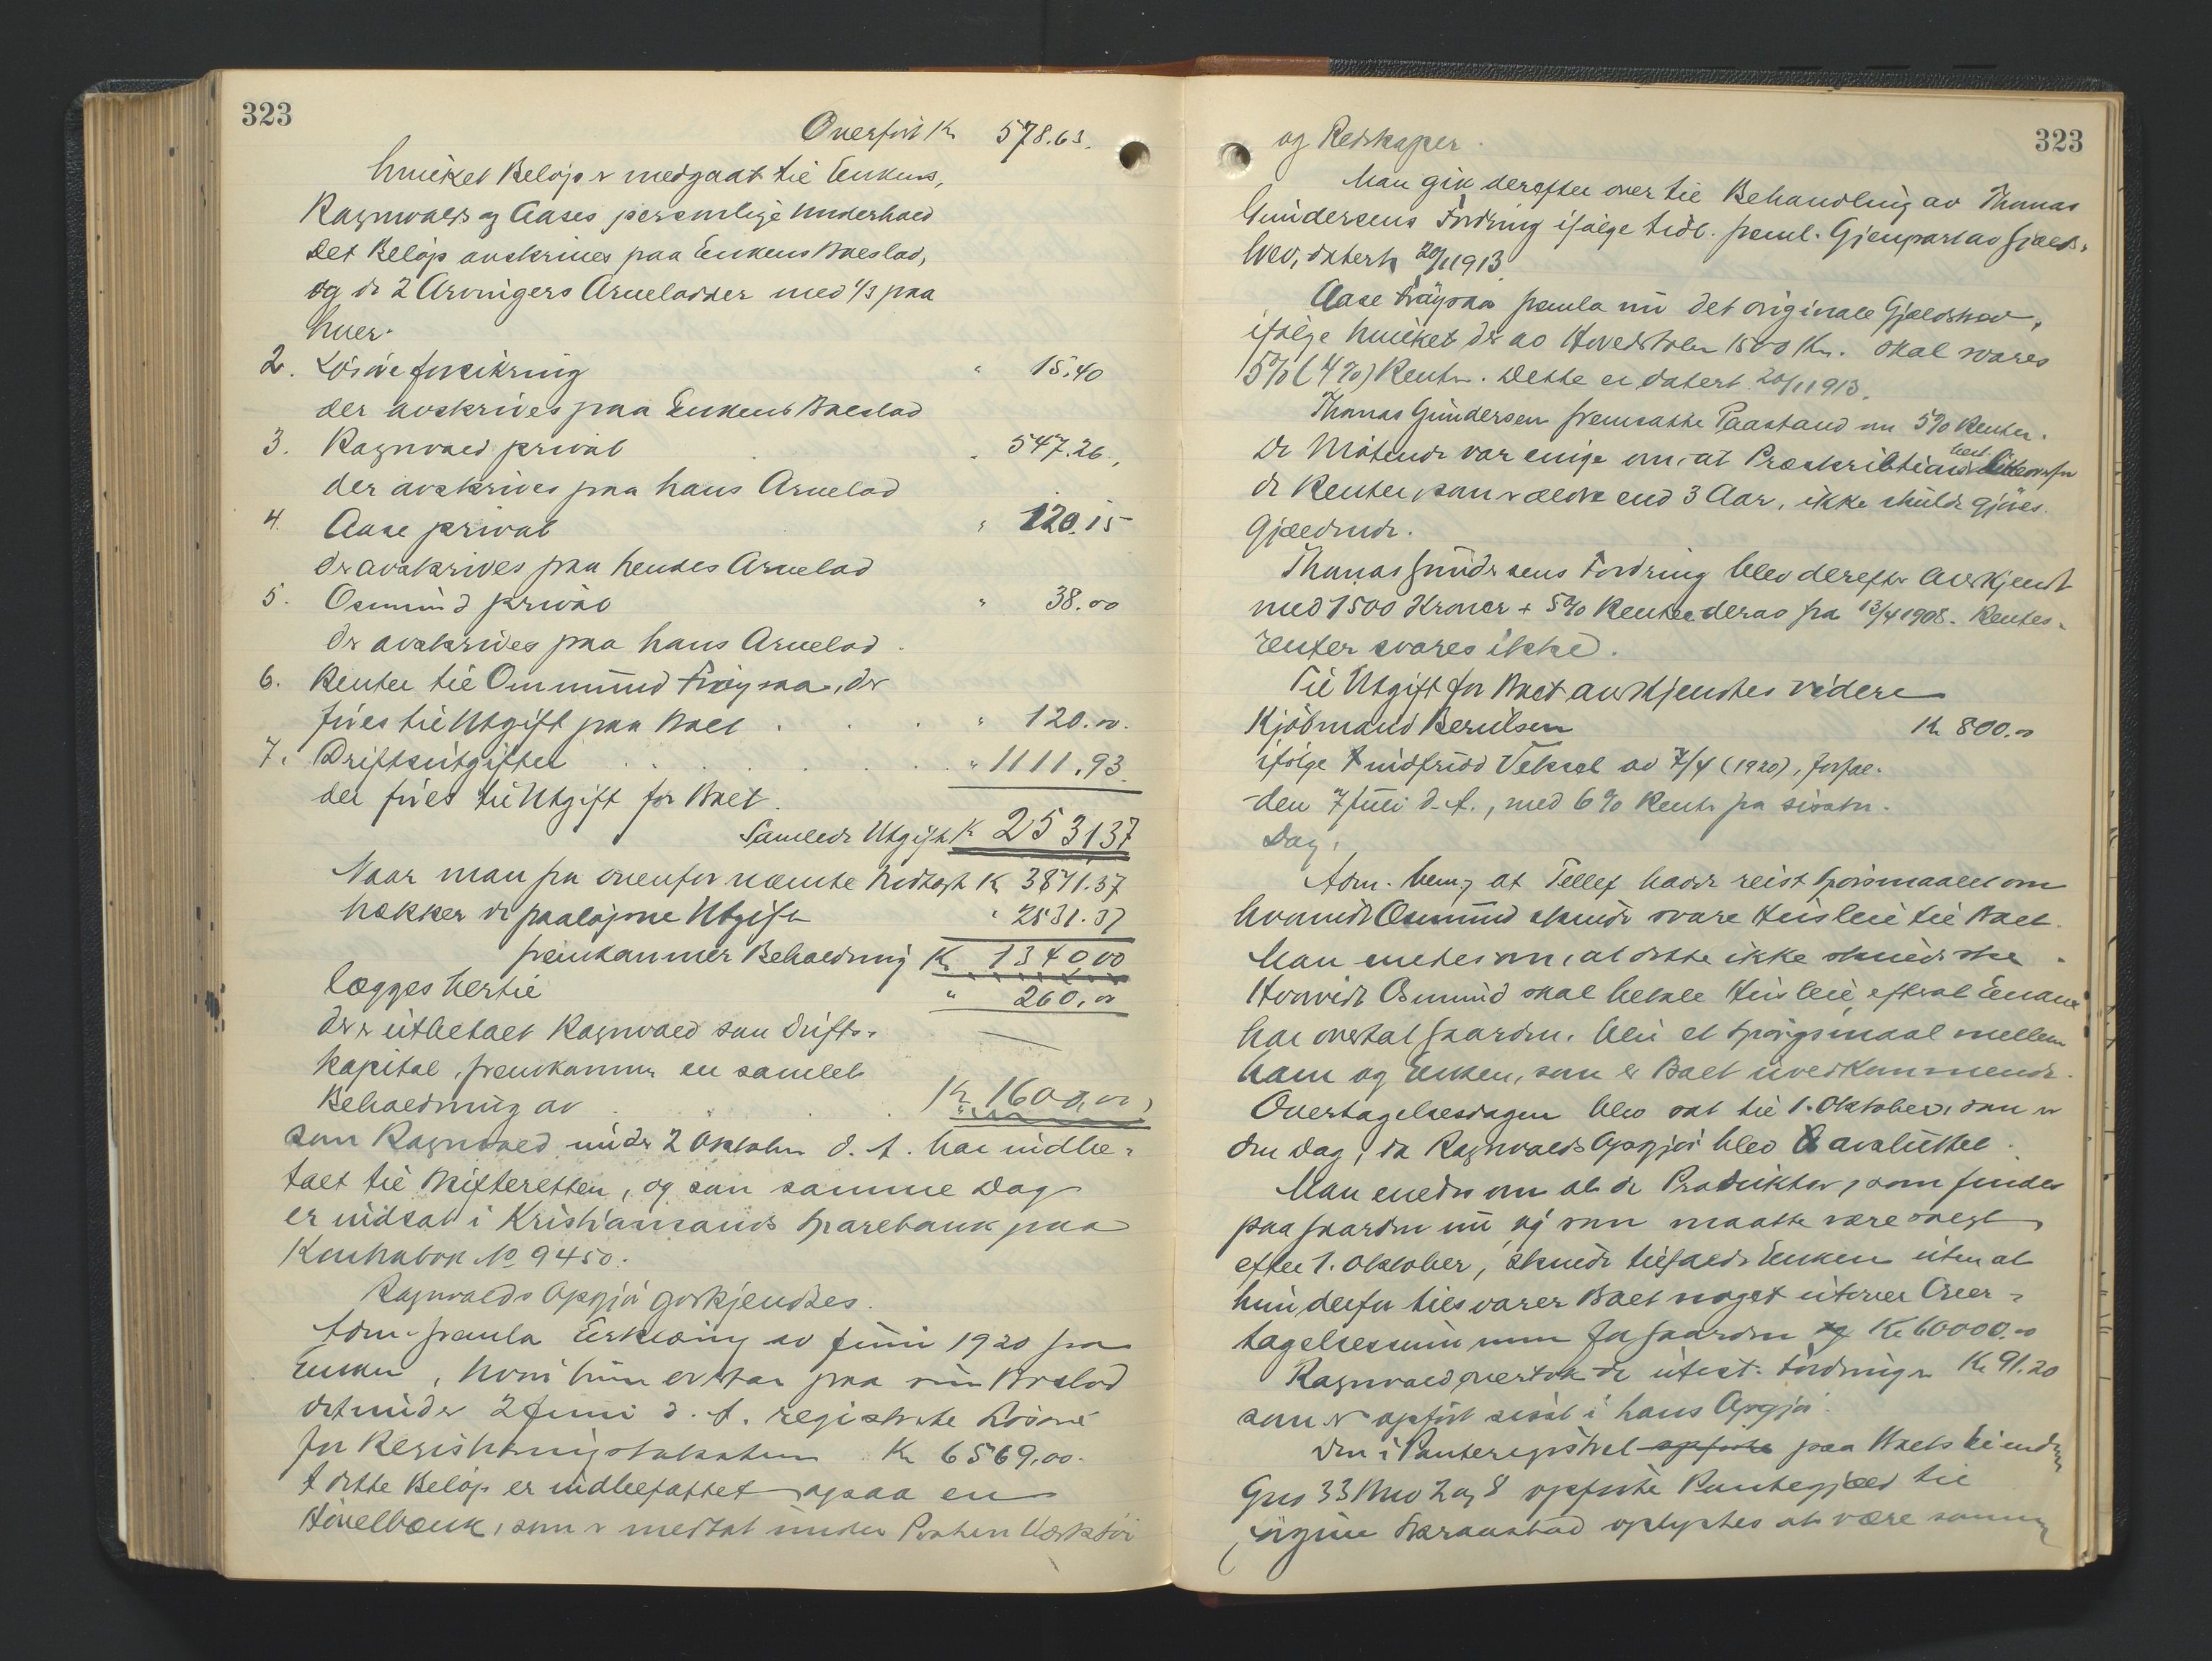 323
Overført Kr 578.63.
hvilket Beløp er medgaat til Enkens,
Ragnvalds og Aases personlige Underhold
Det Beløp avskrives paa Enkens Boeslod,
og de 2 Arvingers Arvelodder med 1/3 paa
hver.
2. Løsøreforsikring " 15.40
der avskrives paa Enkens Boeslod
3. Ragnvald privat " 547.26,
der avskrives paa hans Arvelod
4. Aase privat " 120.15
der avskrives paa hendes Arvelod
5. Osmund privat " 38.00
der avskrives paa hans Arvelod.
6. Renter til Ommund Frøysaa, der
føres til Utgift paa Boet . . . " 120.00.
7. Driftsutgifter . . . . . . . " 1111.93.
der føres til Utgift for Boet.
Samlede Utgift Kr 2531.37
Naar man fra ovenfor nævnte Indtægt Kr 3871.37
trækker de paaløpne Utgifter " 2531.37
fremkommer Beholdning Kr 1340.00
lægges hertil " 260.00
der er utbetalt Ragnvald som Drifts-
kapital, fremkommer en samlet
Beholdning av . . . . Kr 1600,00,
som Ragnvald under 2 Oktober d. A. har indbe-
talt til Skifteretten, og som samme Dag
er indsat i Kristiansands Sparebank paa
Kontrabok No 9450.
Ragnvalds Opgjør godkjendtes.
Adm. fremla Erklæring av Juni 1920 fra
Enken, hvori hun overtar paa sin Boslod
det under 2 Juni d. A. registrerte Løsøre
for Registreringstaksten Kr 6569,00.
I dette Beløp er indbefattet ogsaa en
Høvelbænk, som er medtat under Posten Værktøi
323
og Redskaper.
Man gik derefter over til Behandling av Thomas
Gundersens Fordring ifølge tidl. freml. Gjenpart av Gjælds-
brev, datert 20/11 1913.
Aase Frøysaa fremla nu det originale Gjældsbrev,
ifølge hvilket der av Hovedstolen 1500 Kr. skal svares
5% (4%) Renter. Dette er datert 20/11 1913.
Thomas Gundersen fremsatte Paastand om 5% Renter.
De Møtende var enige om, at Præskribtion for
de Renter, som er ældre end 3 Aar, ikke skulde gjøres
gjældende.
Thomas Gundersens Fordring blev derefter Godkjendt
med 1500 Kroner + 5% Renter derav fra 13/4 1908. Rentes-
renter svares ikke.
Til Utgift for Boet godkjendtes videre
Kjøbmand Berulsen Kr 800.00
ifølge indfridd Veksel av 7/4 (1920), forfal-
den 7 Juli d. A., med 6% Rente fra sidstn.
Dag.
Adm. bem., at Tellef hadde reist Spørsmaalet om
hvorvidt Osmund skulde svare Husleie til Boet.
Man enedes om, at dette ikke skulde ske.
Hvorvidt Osmund skal betale Husleie, efterat Enken
har overtat Gaarden, blir et Spørgsmaal mellem
ham og Enken, som er Boet uvedkommende.
Overtagelsesdagen blev sat til 1. Oktober, som er
den Dag, da Ragnvalds Opgjør blev avsluttet.
Man enedes om at de Produkter, som findes
paa Gaarden nu og som maatte være solgt
efter 1. Oktober, skulde tilfalde Enken uten at
hun derfor tilsvarer Boet noget utover Over-
tagelsessummen for Gaarden Kr 60000.00
Ragnvald overtok de utest. Fordringer Kr 91.20
som er opført sidst i hans Opgjør.
Den i Panteregistret opførte paa Boets Eiendom
Gno 33 Bno 2 og 8 opførte Pantegjæld til
Jørgine Skraastad oplystes at være samme